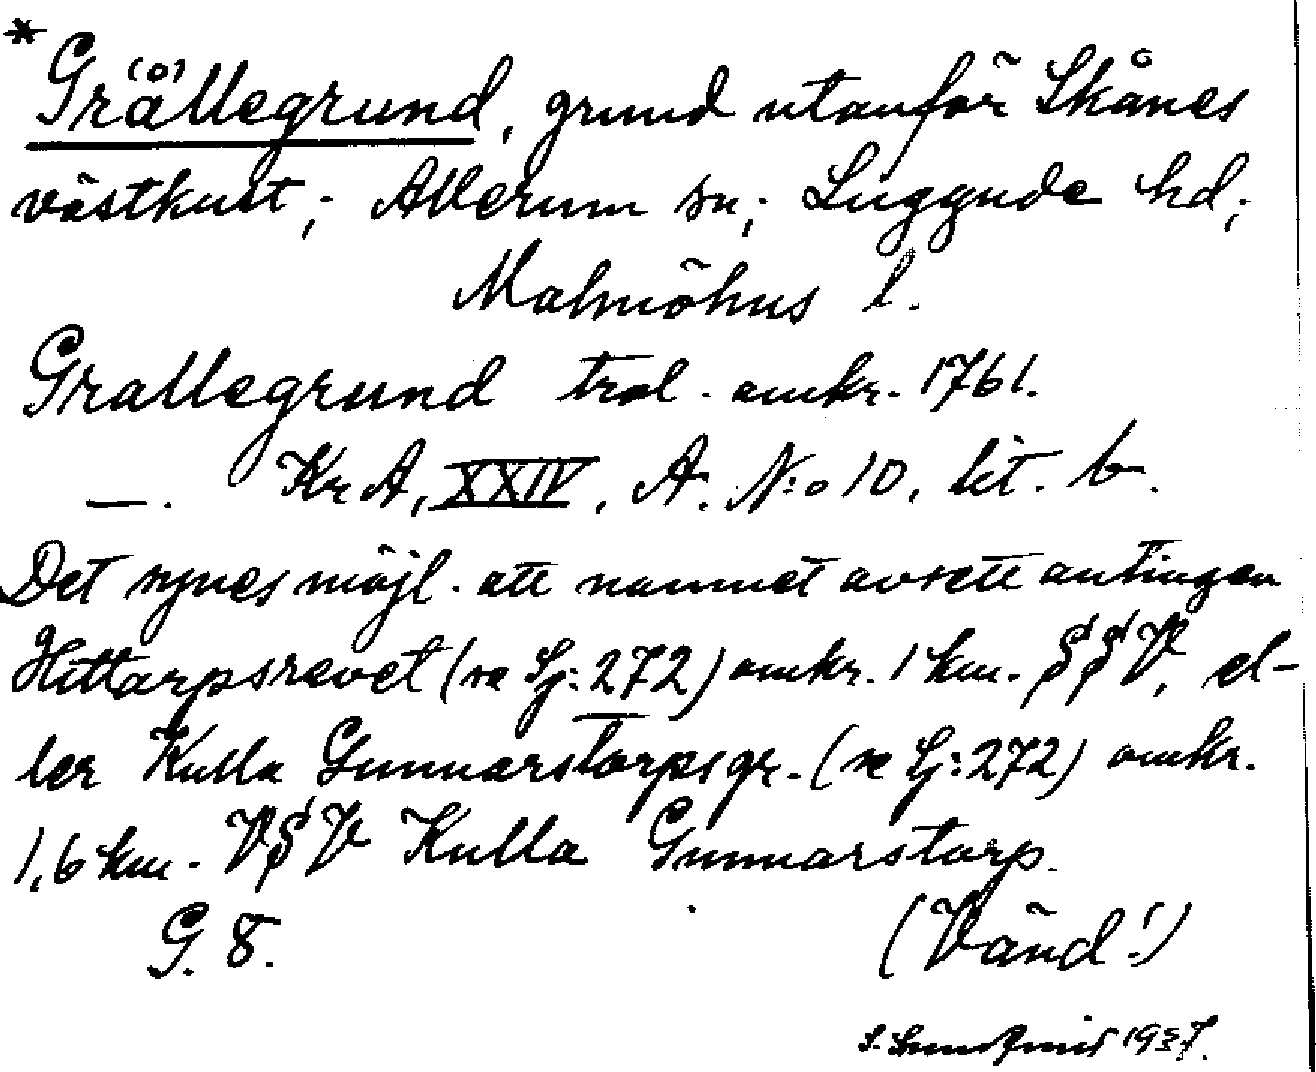 * Grällegrund, grund utanför Skånes
(o)
västkust; Allerum sn; Luggude hd;
Malmöhus l.
Grallegrund trol. omkr. 1761.
—. KrA, XXIV, A. N:o 10, lit. b.
Det synes möjl. att namnet avsett antingen
Hittarpsrevet (se Sj: 272) omkr. 1 km. SSV, el-
ler Kulla Gunnarstorpsgr. (se Sj: 272) omkr.
1,6 km. VSV Kulla Gunnarstorp.
G. 8. (Vänd!)
S. 1937.